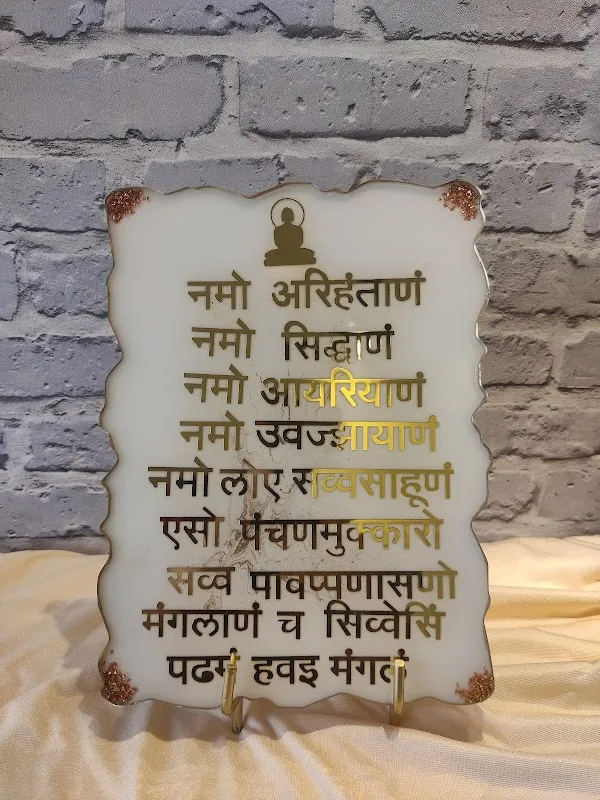 नमो अरिहंताणं
नमो सिद्धाणं
नमो आयरियाणं
नमो उवज्झायाणं
नमो लोए सव्वसाहूणं
एसो पंचणमुक्कारो
सव्व पावप्पणासणो
मंगलाणं च सिव्वेसिं
पढमं हवइ मंगलं